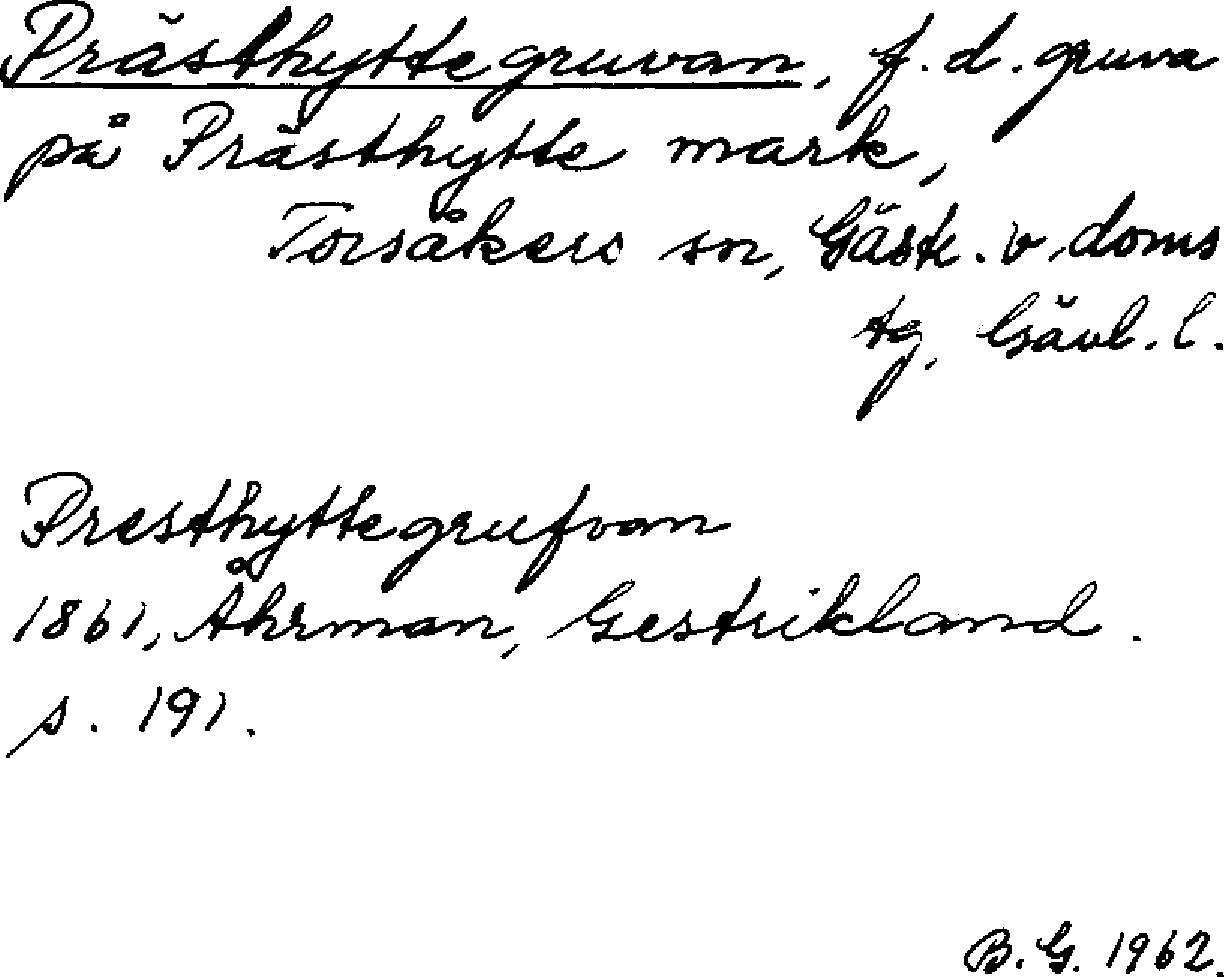 Prästhyttegruvan, f.d. gruva
på Prästhytte mark,
Torsåkers sn, Gästr. v. doms
tg, Gävl. l.
Presthyttegrufvan
1861, Åhrman, Gestrikland.
s. 191.
B.G. 1962.